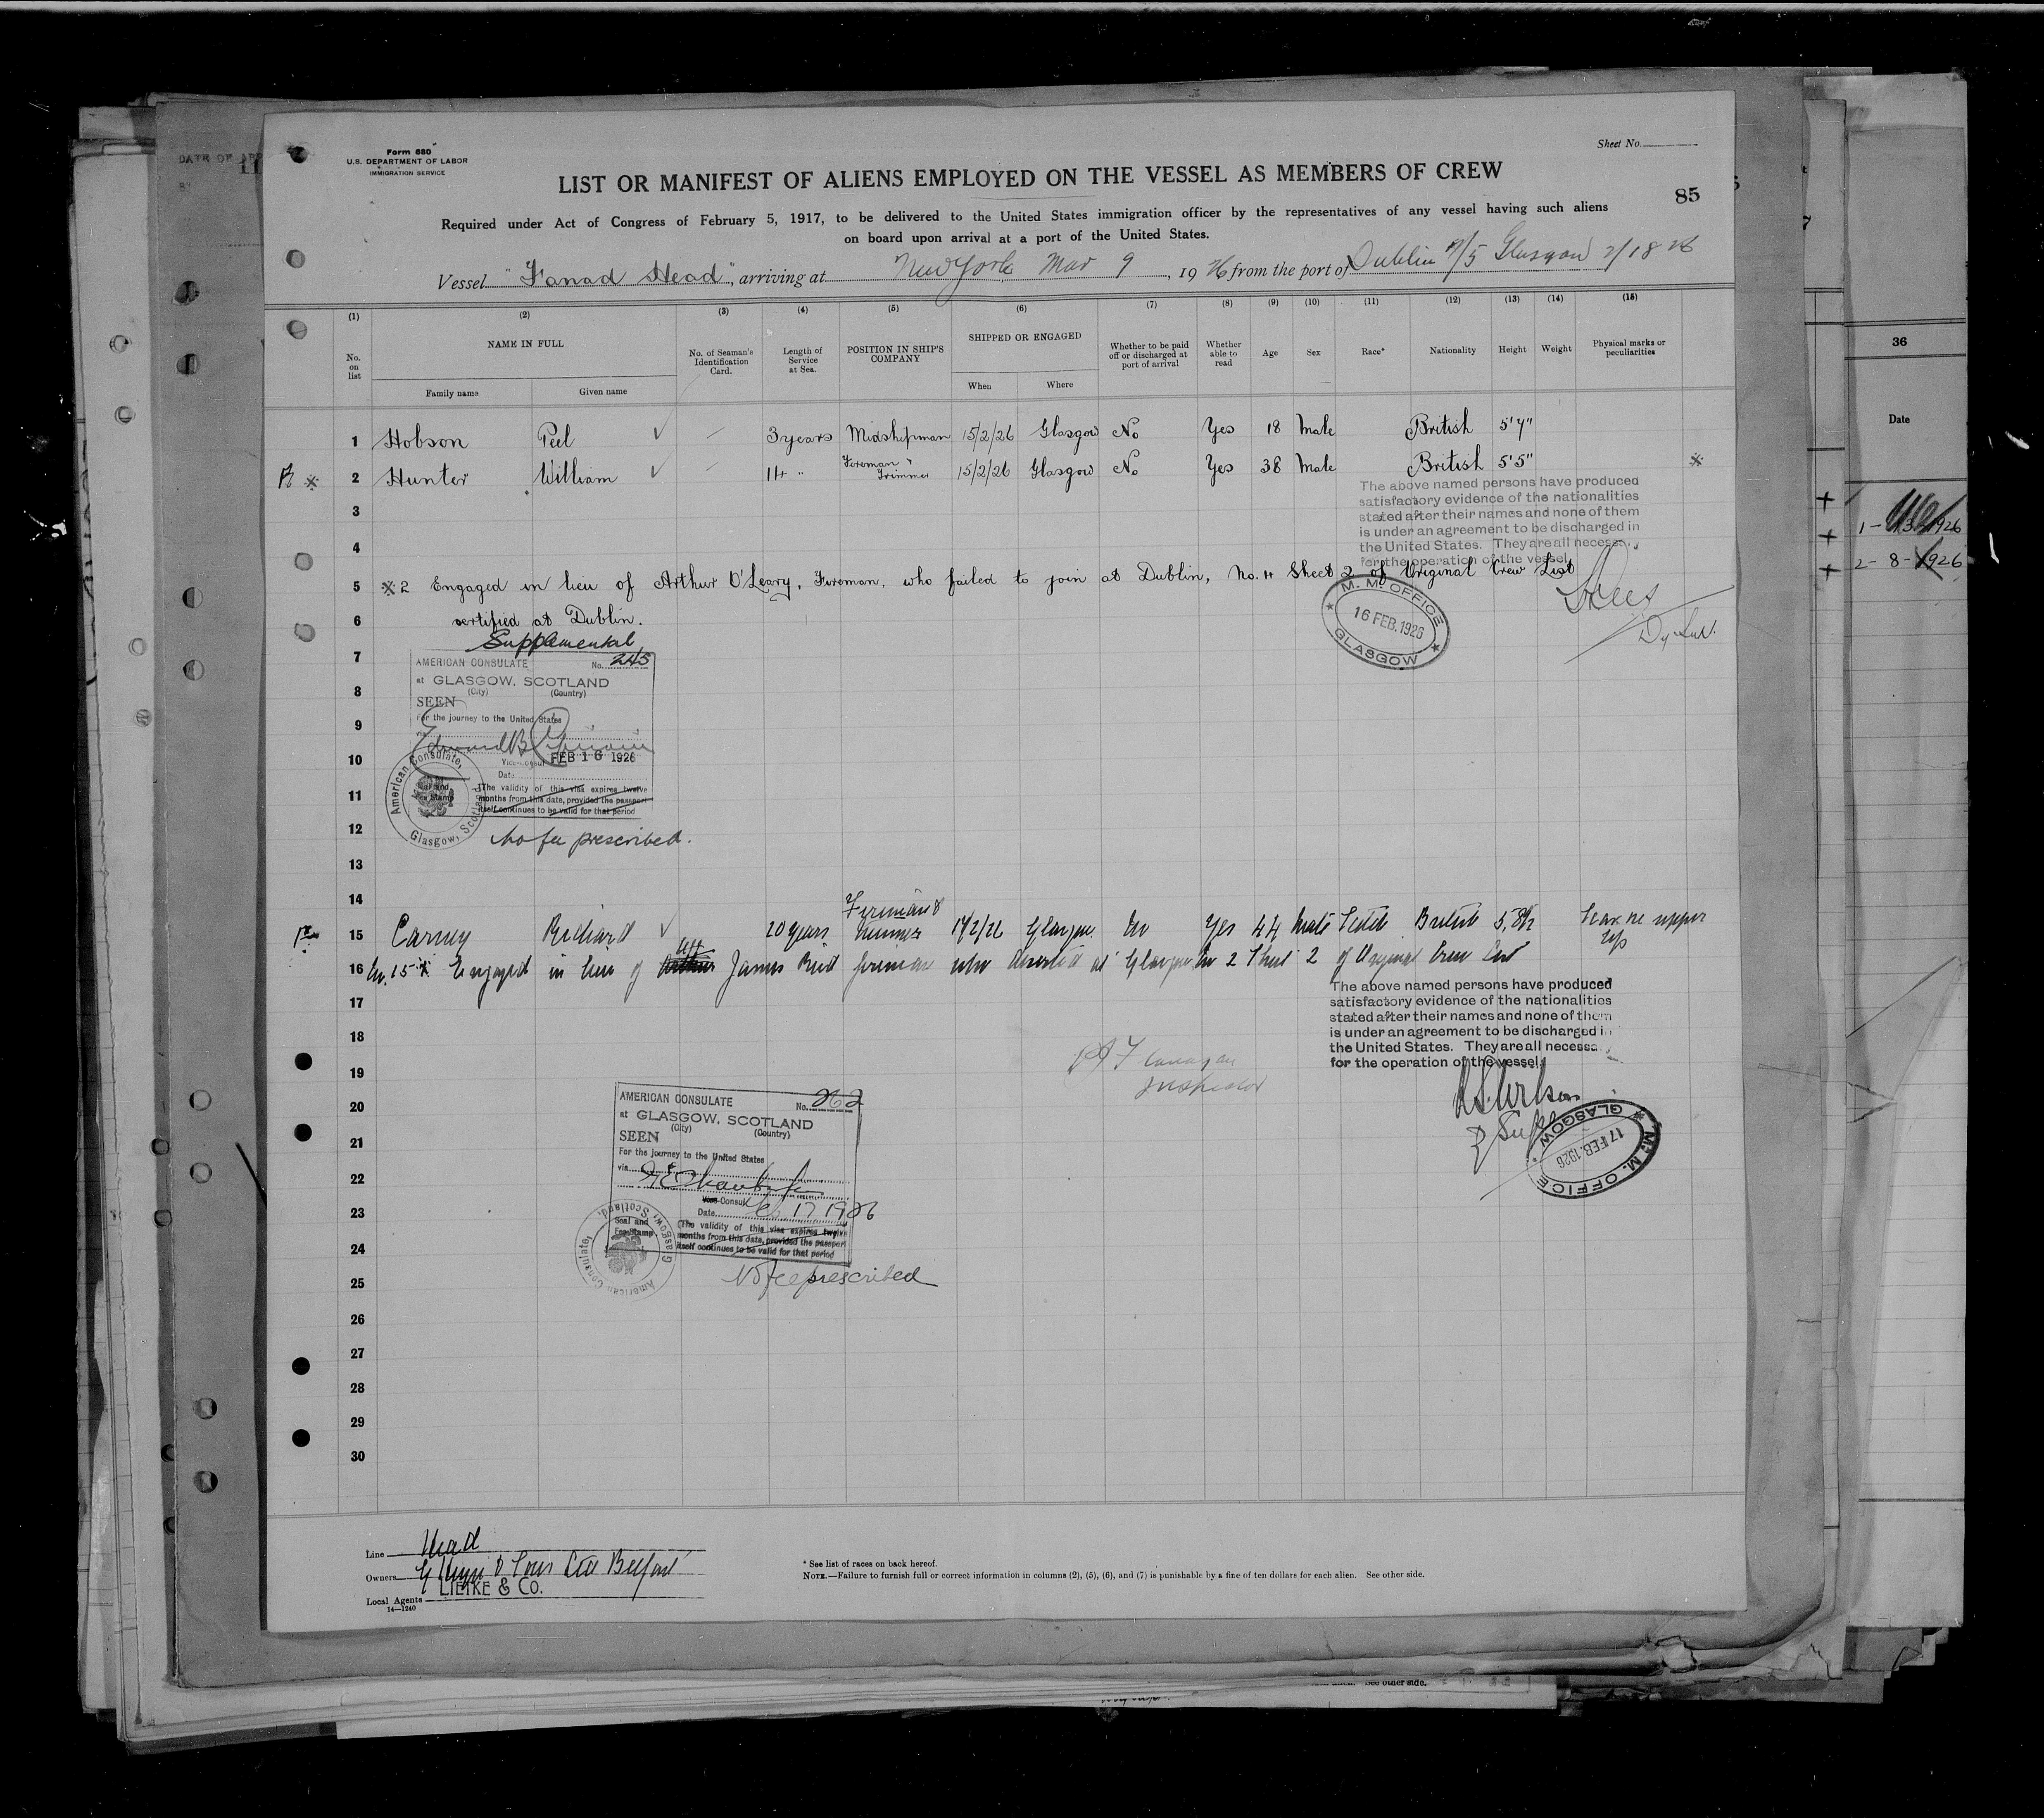 DATE OF
Form 680
U.S. DEPARTMENT OF LABOR
IMMIGRATION SERVICE
Sheet No.
LIST OR MANIFEST OF ALIENS EMPLOYED ON THE VESSEL AS MEMBERS OF CREW
85
Required under Act of Congress of February 5, 1917, to be delivered to the United States immigration officer by the representatives of any vessel having such aliens
on board upon arrival at a port of the United States.
Vessel "Fanad Head", arriving at New York Mar 9, 1926 from the port of Dublin 2/5 Glasgow 2/18 26
(1) (2) (3) (4) (5) (6) (7) (8) (9) (10) (11) (12) (13) (14) (15)
No. on list
NAME IN FULL
Family name
Given name
No. of Seaman's Identification Card.
Length of Service at Sea.
POSITION IN SHIP'S COMPANY
SHIPPED OR ENGAGED
When
Where
Whether to be paid off or discharged at port of arrival
Whether able to read
Age
Sex
Race*
Nationality
Height
Weight
Physical marks or peculiarities
36
Date
1 Hobson Peel ✓ — 3 years Midshipman 15/2/26 Glasgow No Yes 18 Male British 5'7"
2 Hunter William ✓ — 14 " Fireman & Trimmer 15/2/26 Glasgow No Yes 38 Male British 5'5"
The above named persons have produced
satisfactory evidence of the nationalities
stated after their names and none of them
is under an agreement to be discharged in
the United States. They are all necessary
for the operation of the vessel
3
4
5 2 Engaged in lieu of Arthur O'Leary, Fireman, who failed to join at Dublin, No. 4 Sheet 2 of Original Crew List
6 certified at Dublin.
M. M. OFFICE
16 FEB. 1926
GLASGOW
1- 1926
2- 8- 1926
Supplemental
7
AMERICAN CONSULATE No. 245
at GLASGOW, SCOTLAND
(City) (Country)
8
SEEN
For the journey to the United States
9
via
10
Vice-Consul
Date FEB 16 1926
American Consulate, Glasgow, Scotland
Seal and Fee Stamp
11
(The validity of this visa expires twelve
months from this date, provided the passport
itself continues to be valid for that period
12
No fee prescribed.
13
14
15 Carney Richard ✓ 20 years Fireman & Trimmer 17/2/26 Glasgow No Yes 44 Male Scotch British 5,8½ Scar on upper lip
16 No. 15 Engaged in lieu of James Reid fireman who deserted at Glasgow No 2 Sheet 2 of Original Crew List
The above named persons have produced
satisfactory evidence of the nationalities
stated after their names and none of them
is under an agreement to be discharged in
the United States. They are all necessary
for the operation of the vessel
17
18
19
Flanagan
Inspector
20
AMERICAN CONSULATE No. 262
at GLASGOW, SCOTLAND
(City) (Country)
21
SEEN
For the journey to the United States
via
M. M. OFFICE
17 FEB. 1926
GLASGOW
22
Vice-Consul
23
Date Feb 17 1926
American Consulate, Glasgow, Scotland
Seal and Fee Stamp
(The validity of this visa expires twelve
months from this date, provided the passport
itself continues to be valid for that period
24
25
No fee prescribed
26
27
28
29
30
Line Head
Owners & Sons Ltd Belfast
Local Agents LIETKE & CO.
14—1240
* See list of races on back hereof.
NOTE.—Failure to furnish full or correct information in columns (2), (5), (6), and (7) is punishable by a fine of ten dollars for each alien. See other side.
See other side.